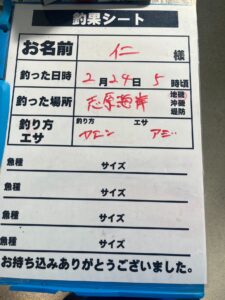 釣果シート
お名前 仁 様
釣った日時 2月24日 5時頃
釣った場所 海岸 地磯 沖磯 堤防
釣り方 エサ 釣り方 エサ アミ
魚種 サイズ
魚種 サイズ
魚種 サイズ
魚種 サイズ
お持ち込みありがとうございました。